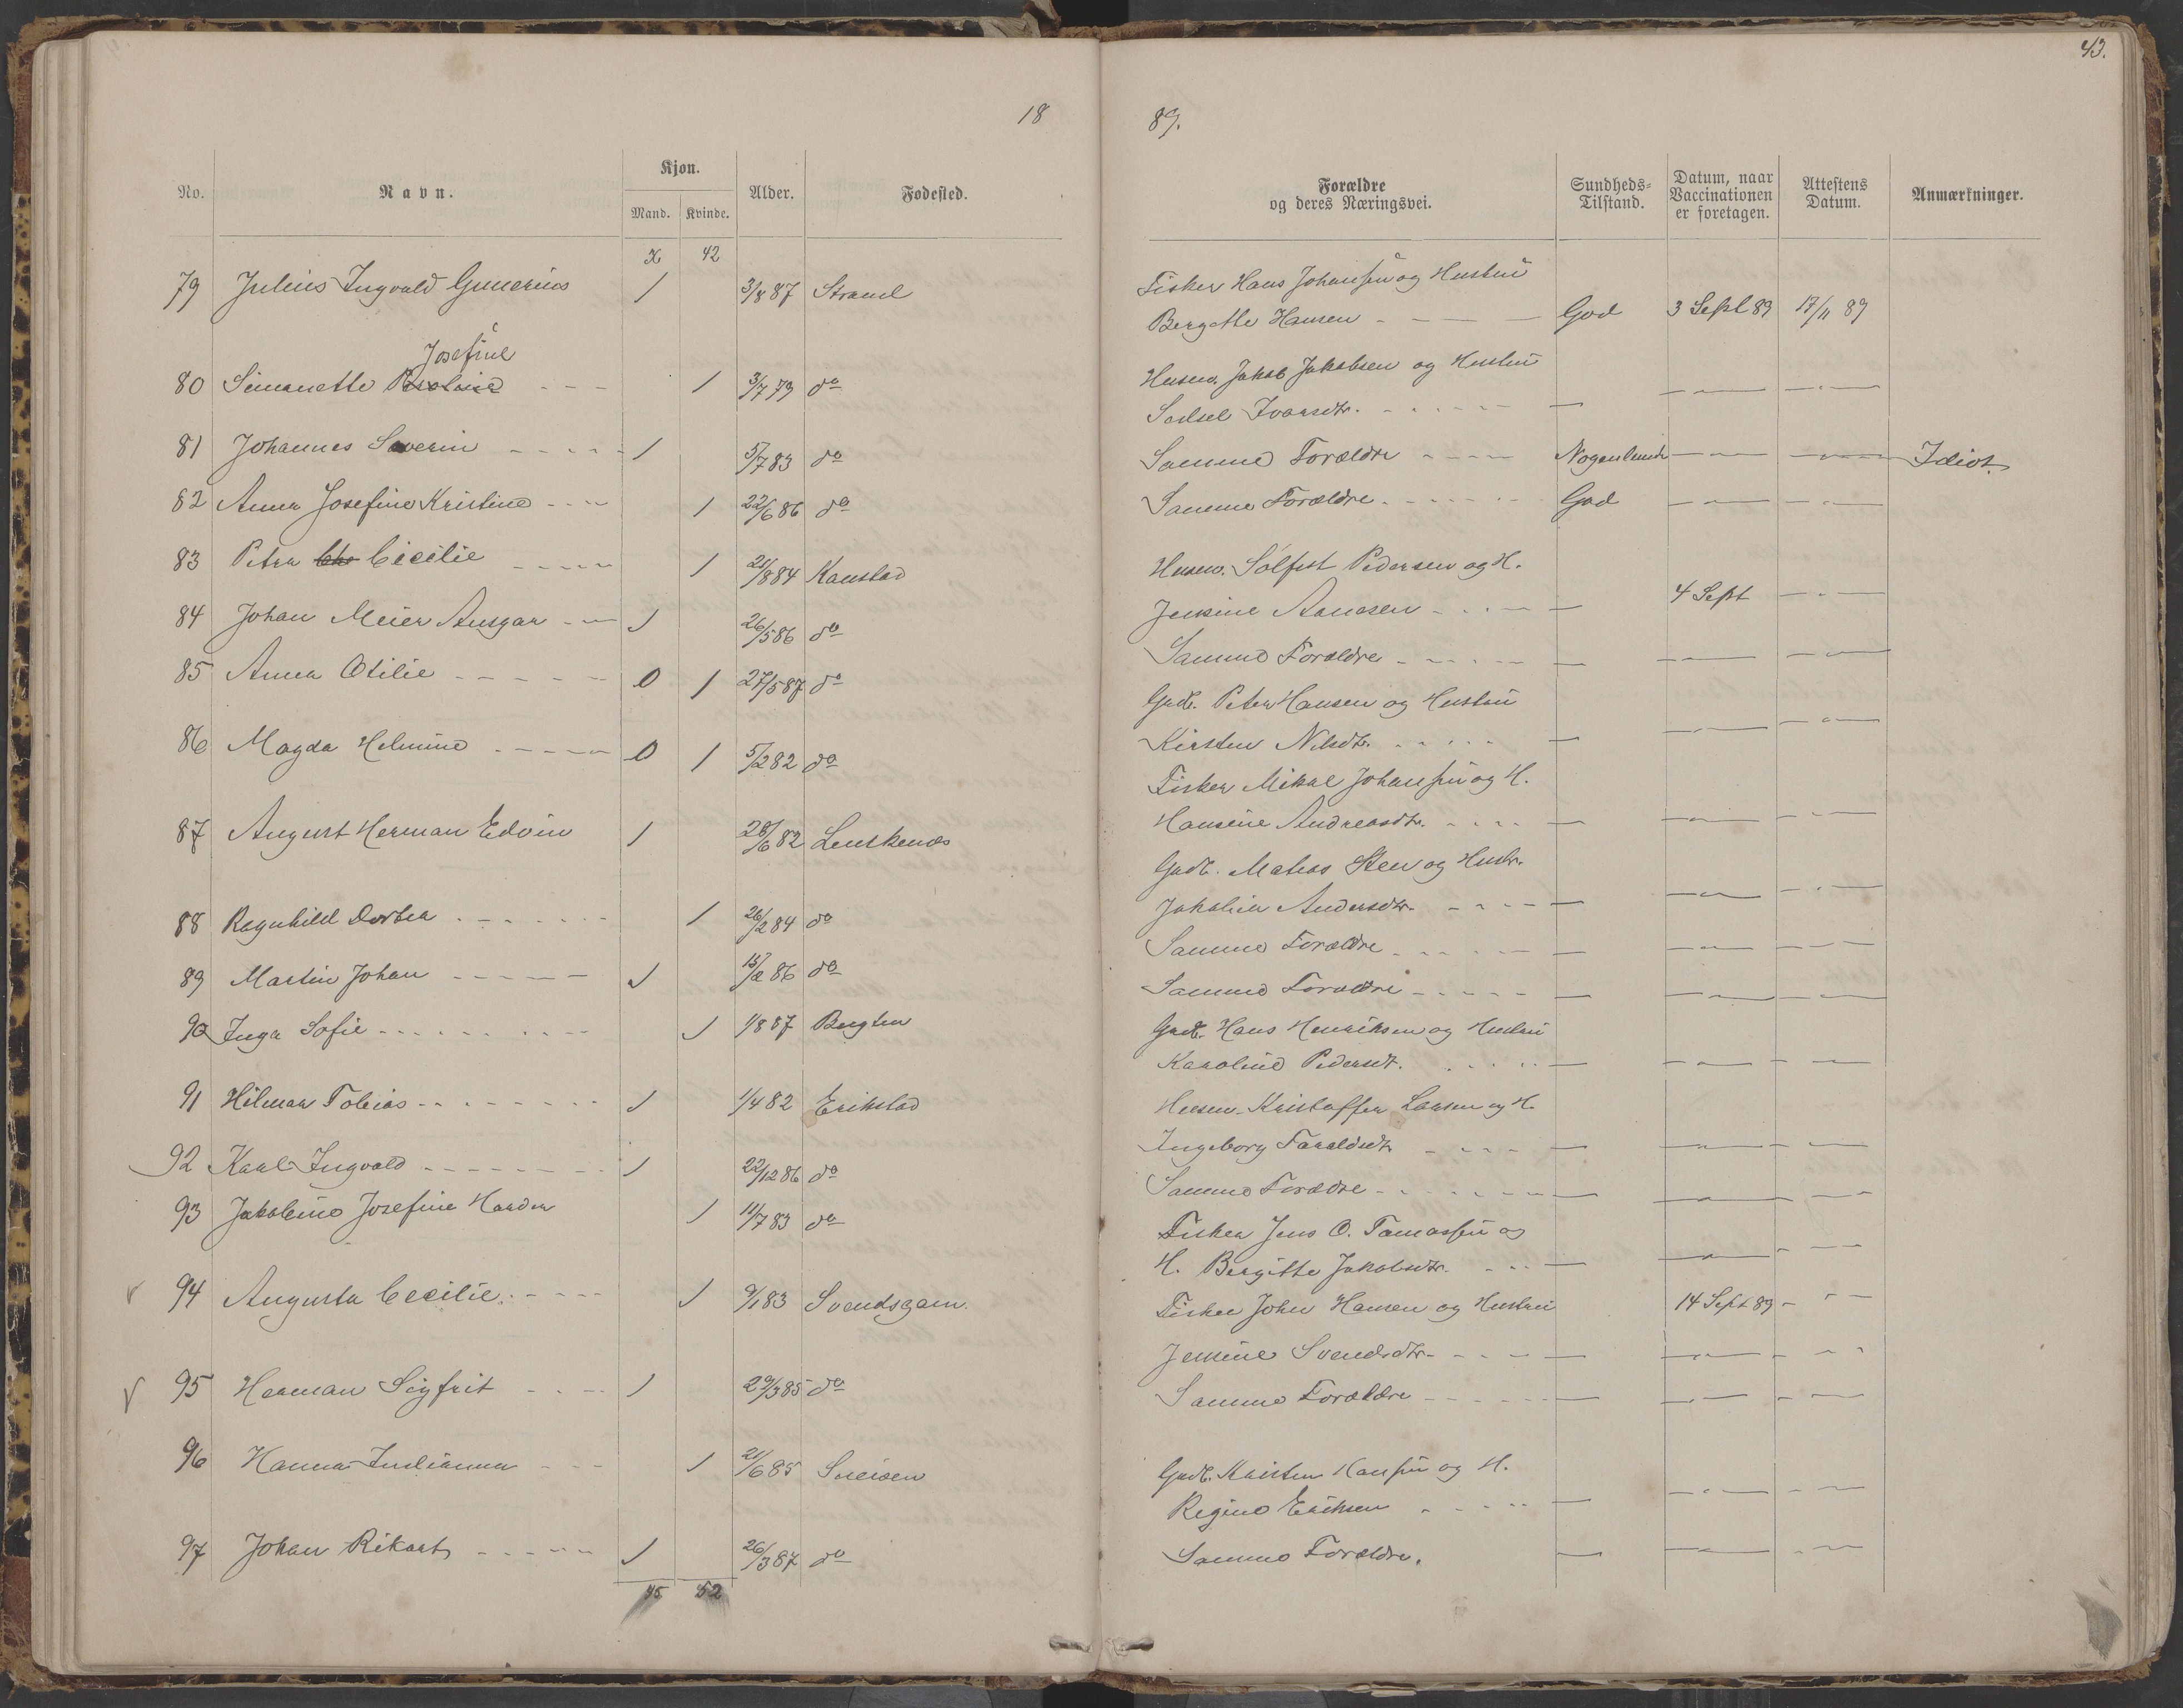 43.
18 89.
No. Navn. Kjøn. Mand. Kvinde. Alder. Fødested. Forældre og deres Næringsvei. Sundheds-Tilstand. Datum, naar Vaccinationen er foretagen. Attestens Datum. Anmærkninger.
42
79 Julius Ingvald Gunerius 1 3/8 87 Strand Fisker Hans Johansen og Hustru
Bergette Hansen - — — God 3 Sept 89 17/11 89
Josefine
80 Simonette - - - 1 3/7 79 do Husm. Jakob Jakobsen og Hustru
Sedsel Ivarsdtr. - - - - — — " — — " —
81 Johannes Severin - - - - 1 5/7 83 do Samme Forældre - - - - Nogenlunde — " — — " — Idiot
82 Anna Josefine Kristine - - - 1 22/6 86 do Samme Forældre - - - - God — " — — " —
83 Petra Cecilie - - - - 1 21/8 84 Kanstad Husm. Sólfest Pedersen og H.
Jensine Aanesen - - - — 4 Sept — " —
84 Johan Meier Ansgar - - 1 26/5 86 do Samme Forældre - - - - — — " — — " —
85 Anna Otilie - - - - - 0 1 27/5 87 do Gadb. Peter Hansen og Hustru
Kirsten Nilsdtr. - - - - — — " — — " —
86 Magda Helmine - - - - 0 1 5/2 82 do Fisker Mikal Johansen og H.
Hansine Andreasdtr. - - - — — " — — " —
87 August Herman Edvin 1 28/6 82 Lenskenæs Gadb. Matias Steen og Hustr.
Jakobia Andersdtr. - - - — — " — — " —
88 Ragnhild Dortea - - - - - 1 26/2 84 do Samme Forældre - - - - — — " — — " —
89 Martin Johan - - - - - 1 15/2 86 do Samme Forældre - - - - — — " — — " —
90 Inga Sofie - - - - - - 1 1/8 87 Bugten Gadb. Hans Henriksen og Hustru
Karoline Pedersdt. - - - - — — " — — " —
91 Hilmar Tobias - - - - - 1 1/4 82 Erikstad Husm. Kristoffer Larsen og H.
Ingeborg Taraldsdtr - - - — — " — — " —
92 Karl Ingvald - - - - - 1 22/12 86 do Samme Forældre - - - - — — " — — " —
93 Jakobine Josefine Harder 1 11/7 83 do Fisker Jens O. Tomassen og
H. Bergitte Jakobsdtr. - - — — " — — " —
94 Augusta Cecilie - - - - 1 9/1 83 Svendsgam. Fisker John Hansen og Hustru 14 Sept 89 - " —
Jensine Svendsdtr - - - — — " — — " —
95 Herman Sigfrit - - - 1 29/3 85 do Samme Forældre - - - - — — " — — " —
96 Hanna Indianna - - - 1 21/6 85 Gadb. Kristen Hansen og H.
Regine Eriksen - - - - — — " — — " —
97 Johan Rikart - - - - 1 26/3 87 do Samme Forældre. — — " — — " —
45 52